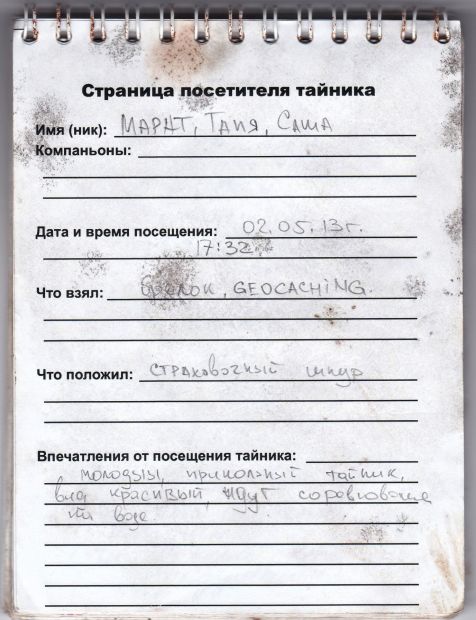 Страница посетителя тайника
Имя (ник): МАРАТ, Таня, Саша
Компаньоны:
Дата и время посещения: 02.05.13г.
17:32
Что взял: брелок, GEOCACHING.
Что положил: страховочный шнур
Впечатления от посещения тайника:
молодцы, прикольный тайник,
вид красивый, идут соревнования
на воде.